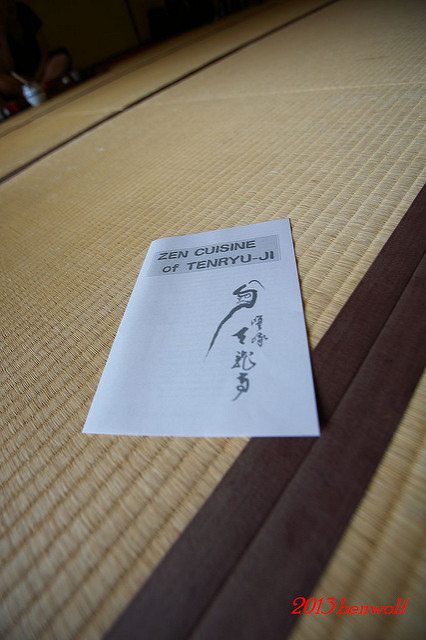 ZEN CUISINE
of TENRYU-JI
天龍寺
2013 benwolf